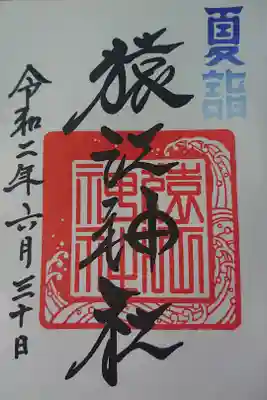 夏詣
猿江神社
猿江
神社
令和二年六月三十日